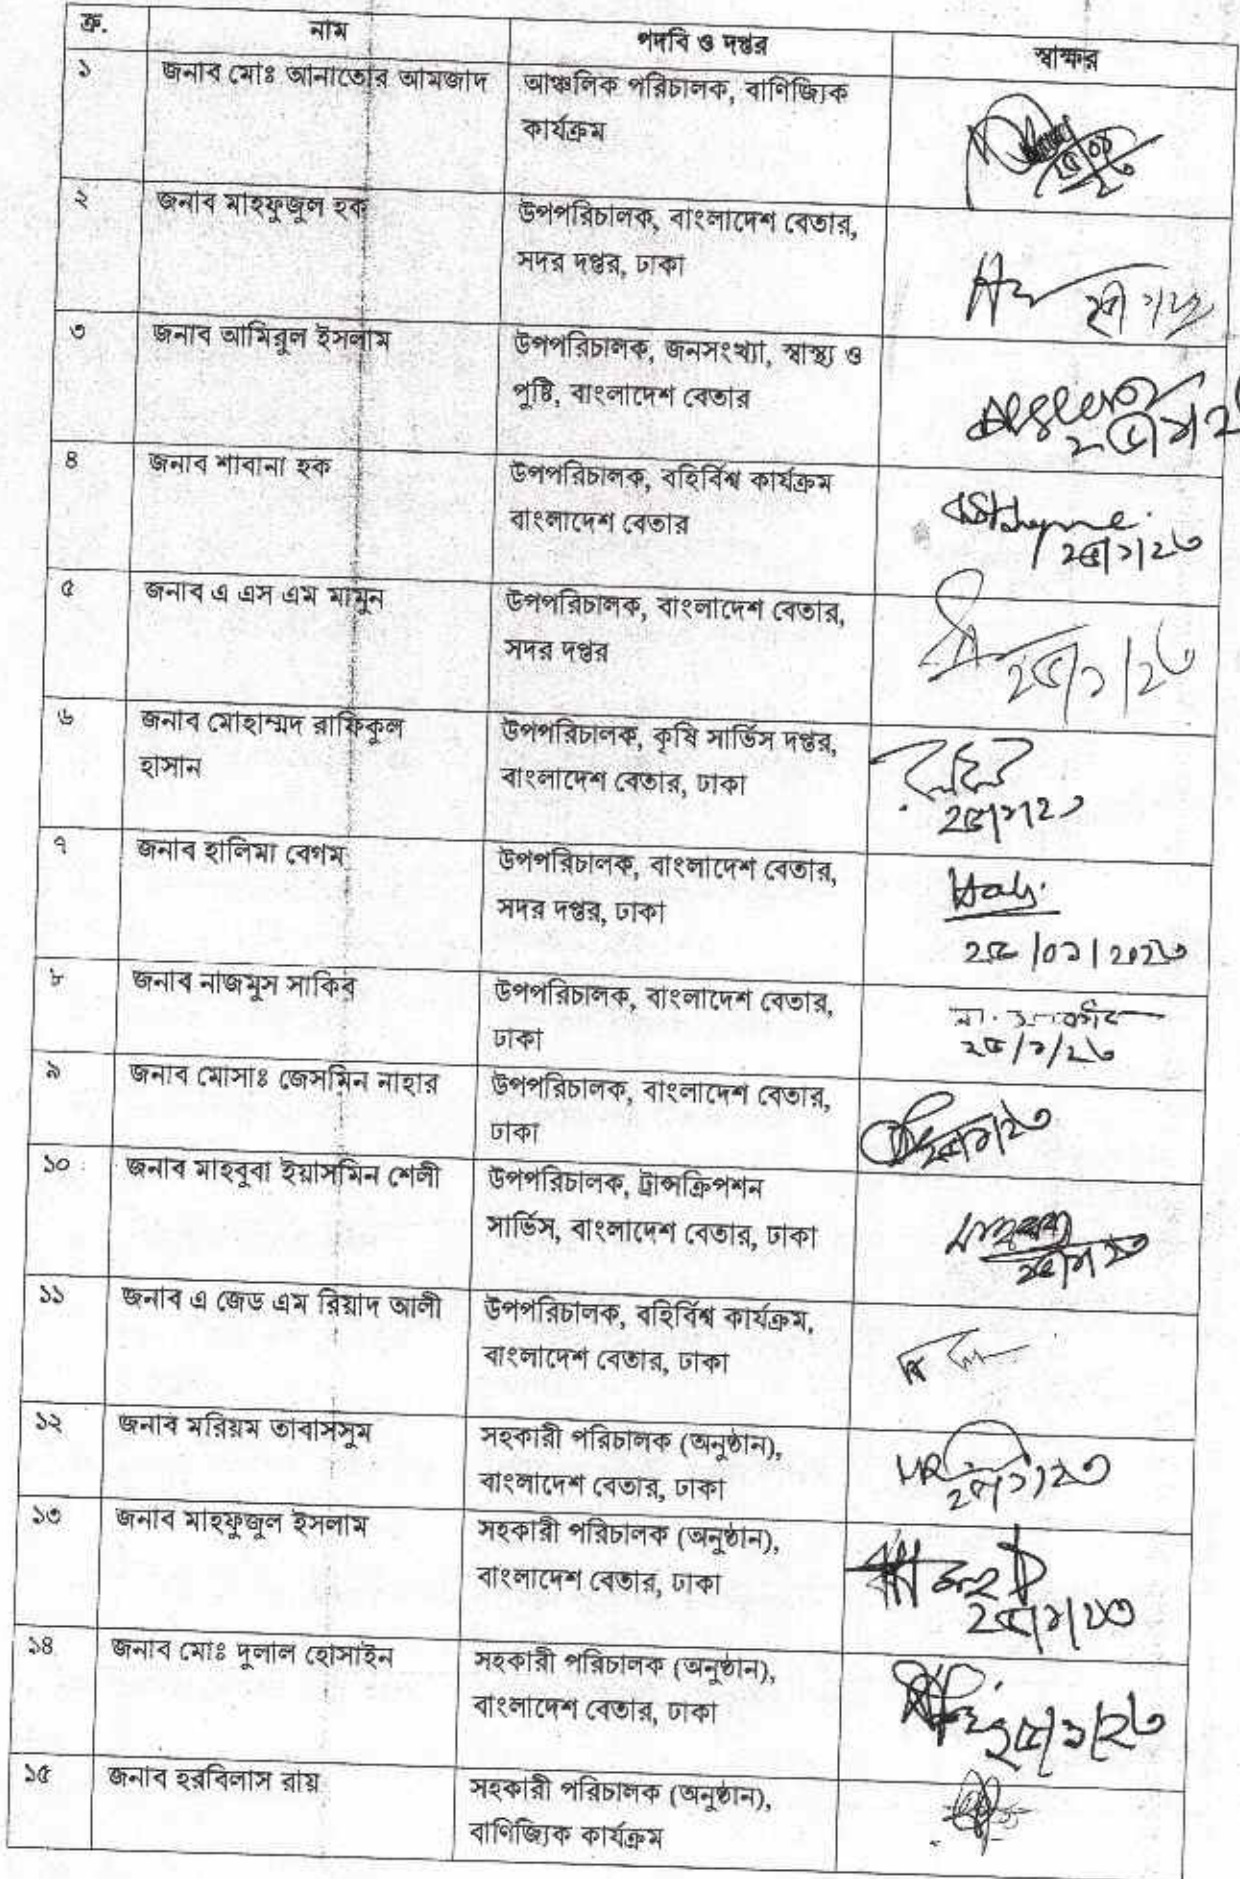 ক্র. নাম পদবি ও দপ্তর স্বাক্ষর
১ জনাব মোঃ আনাতোর আমজাদ আঞ্চলিক পরিচালক, বাণিজ্যিক
কার্যক্রম
২ জনাব মাহফুজুল হক উপপরিচালক, বাংলাদেশ বেতার,
সদর দপ্তর, ঢাকা
৩ জনাব আমিরুল ইসলাম উপপরিচালক, জনসংখ্যা, স্বাস্থ্য ও
পুষ্টি, বাংলাদেশ বেতার
৪ জনাব শাবানা হক উপপরিচালক, বহির্বিশ্ব কার্যক্রম
বাংলাদেশ বেতার
২৫/১/২৩
৫ জনাব এ এস এম মামুন উপপরিচালক, বাংলাদেশ বেতার,
সদর দপ্তর
২৫/১/২৩
৬ জনাব মোহাম্মদ রাফিকুল উপপরিচালক, কৃষি সার্ভিস দপ্তর,
হাসান বাংলাদেশ বেতার, ঢাকা
৭ জনাব হালিমা বেগম উপপরিচালক, বাংলাদেশ বেতার,
সদর দপ্তর, ঢাকা
২৫/০১/২০২৩
৮ জনাব নাজমুস সাকিব উপপরিচালক, বাংলাদেশ বেতার,
ঢাকা ২৫/১/২৩
৯ জনাব মোসাঃ জেসমিন নাহার উপপরিচালক, বাংলাদেশ বেতার,
ঢাকা
১০ জনাব মাহবুবা ইয়াসমিন শেলী উপপরিচালক, ট্রান্সক্রিপশন
সার্ভিস, বাংলাদেশ বেতার, ঢাকা
১১ জনাব এ জেড এম রিয়াদ আলী উপপরিচালক, বহির্বিশ্ব কার্যক্রম,
বাংলাদেশ বেতার, ঢাকা
১২ জনাব মরিয়ম তাবাসসুম সহকারী পরিচালক (অনুষ্ঠান),
বাংলাদেশ বেতার, ঢাকা
১৩ জনাব মাহফুজুল ইসলাম সহকারী পরিচালক (অনুষ্ঠান),
বাংলাদেশ বেতার, ঢাকা
২৫/১/২৩
১৪ জনাব মোঃ দুলাল হোসাইন সহকারী পরিচালক (অনুষ্ঠান),
বাংলাদেশ বেতার, ঢাকা
২৫/১/২৩
১৫ জনাব হরবিলাস রায় সহকারী পরিচালক (অনুষ্ঠান),
বাণিজ্যিক কার্যক্রম